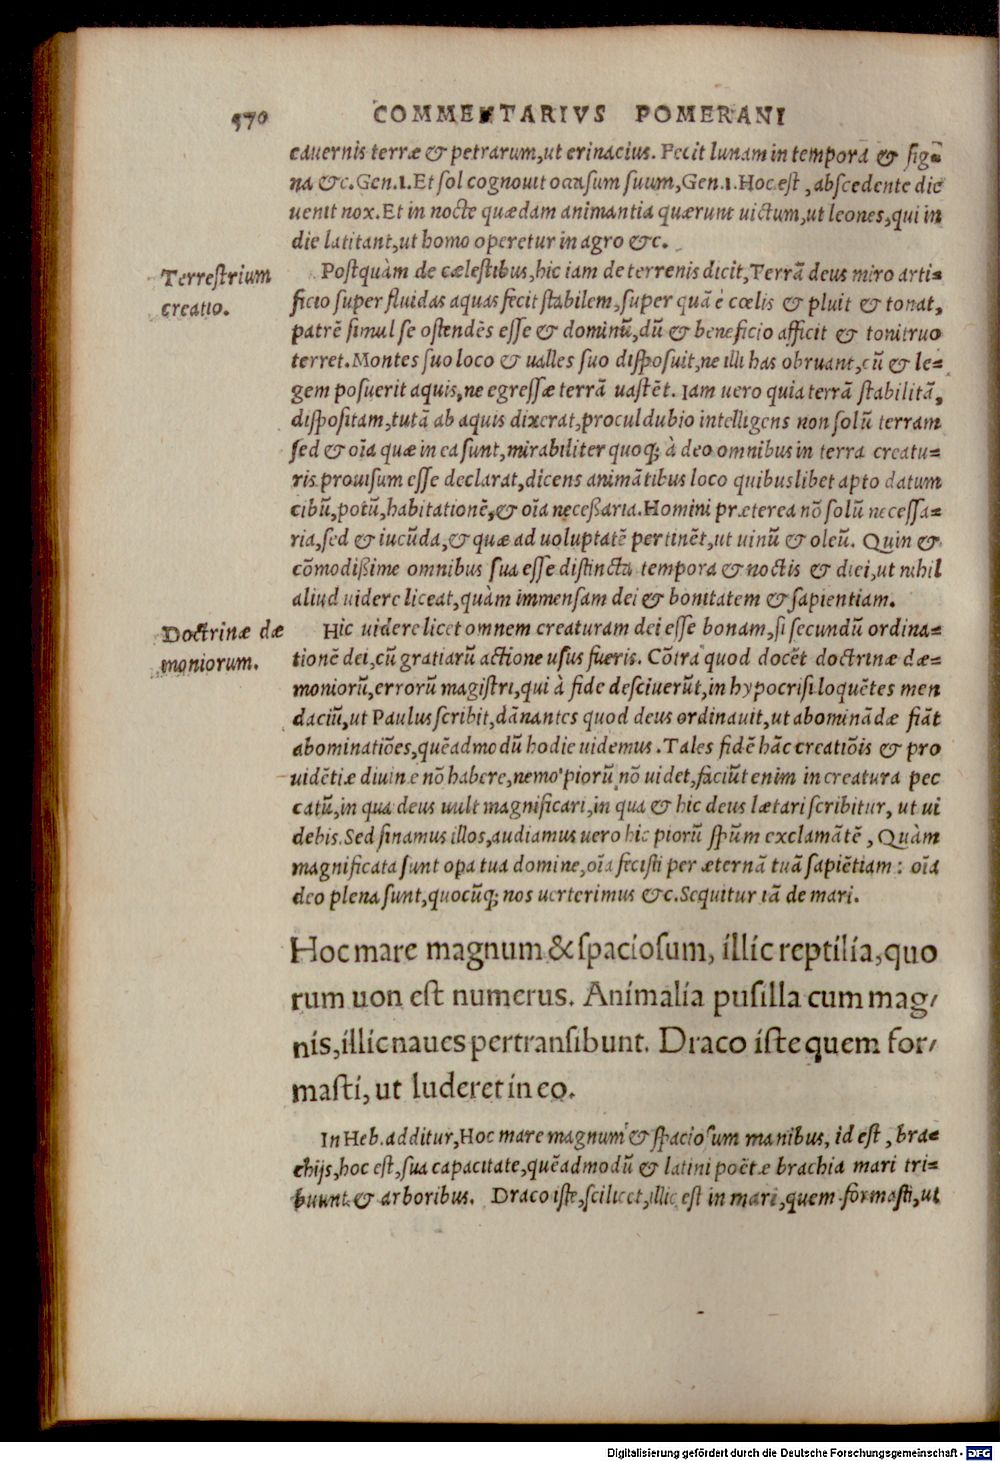 570 COMMENTARIVS POMERANI
cauernis terræ & petrarum, ut erinacius. Fecit lunam in tempora & sig=
na &c. Gen.1. Et sol cognouit occasum suum, Gen.1. Hoc est, abscedente die
uenit nox. Et in nocte quædam animantia quærunt uictum, ut leones, qui in
die latitant, ut homo operetur in agro &c.
Terrestrium
creatio.
Postquàm de cælestibus, hic iam de terrenis dicit, Terrã deus miro arti=
ficio super fluidas aquas fecit stabilem, super quã è cœlis & pluit & tonat,
patrẽ simul se ostendẽs esse & dominũ, dũ & beneficio afficit & tonitruo
terret. Montes suo loco & ualles suo disposuit, ne illi has obruant, cũ & le=
gem posuerit aquis, ne egressæ terrã uastẽt. Iam uero quia terrã stabilitã,
dispositam, tutã ab aquis dixerat, proculdubio intelligens non solũ terram
sed & oĩa quæ in ea sunt, mirabiliter quoq; à deo omnibus in terra creatu=
ris prouisum esse declarat, dicens animãtibus loco quibuslibet apto datum
cibũ, potũ, habitationẽ, & oĩa necessaria. Homini præterea nõ solũ necessa=
ria, sed & iucũda, & quæ ad uoluptatẽ pertinẽt, ut uinũ & oleũ. Quin &
cõmodißime omnibus sua esse distincta tempora & noctis & diei, ut nihil
aliud uidere liceat, quàm immensam dei & bonitatem & sapientiam.
Doctrinæ dæ
moniorum.
Hic uidere licet omnem creaturam dei esse bonam, si secundũ ordina=
tionẽ dei, cũ gratiarũ actione usus fueris. Cõtra quod docẽt doctrinæ dæ=
moniorũ, errorũ magistri, qui à fide desciuerũt, in hypocrisi loquẽtes men
daciũ, ut Paulus scribit, dãnantes quod deus ordinauit, ut abominãdæ fiãt
abominatiões, quẽadmodũ hodie uidemus. Tales fidẽ hãc creatiõis & pro
uidẽtiæ diuinæ nõ habere, nemo piorũ nõ uidet, faciũt enim in creatura pec
catũ, in qua deus uult magnificari, in qua & hic deus lætari scribitur, ut ui
debis. Sed sinamus illos, audiamus uero hic piorũ spũm exclamãtẽ, Quàm
magnificata sunt opa tua domine, oĩa fecisti per æternã tuã sapiẽtiam: oĩa
deo plena sunt, quocũq; nos uerterimus &c. Sequitur iã de mari.
Hoc mare magnum & spaciosum, illic reptilia, quo
rum uon est numerus. Animalia pusilla cum mag/
nis, illic naues pertransibunt. Draco iste quem for/
masti, ut luderet in eo.
In Heb. additur, Hoc mare magnum & spaciosum manibus, id est, bra=
chijs, hoc est, sua capacitate, quẽadmodũ & latini poëtæ brachia mari tri=
buunt & arboribus. Draco iste, scilicet, illic est in mari, quem formasti, ut
Digitalisierung gefördert durch die Deutsche Forschungsgemeinschaft - DFG